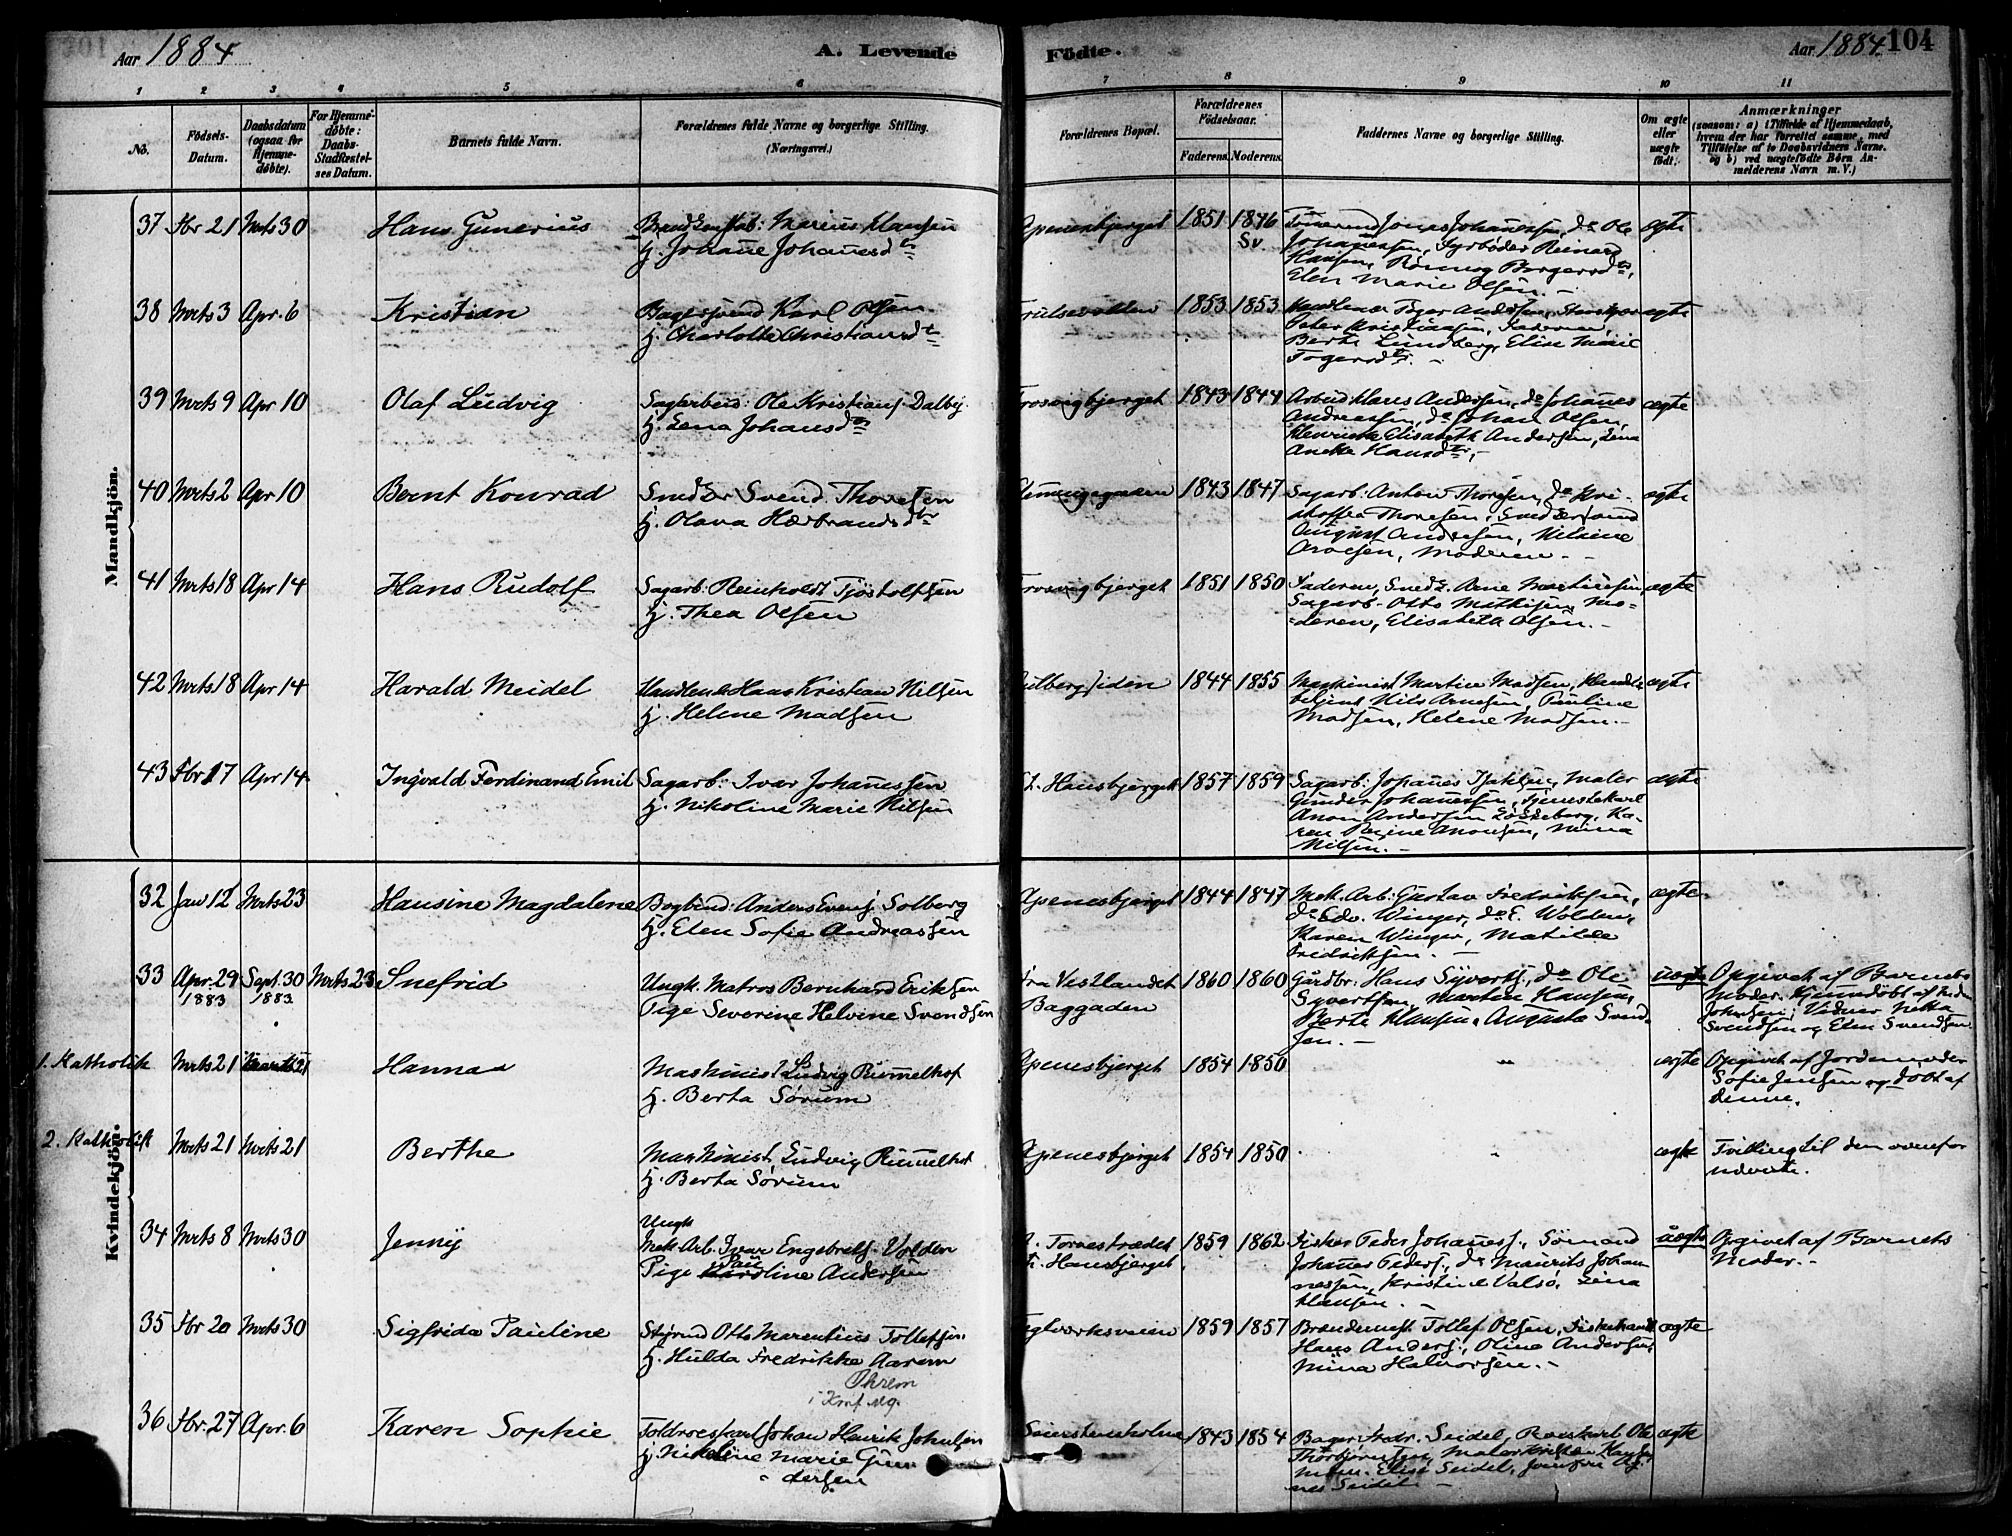 Aar 1884
A. Levende
Födte.
Aar 1884. 104
1 2 3 4 5 6 7 8 9 10 11
No.
Födsels-Datum.
Daabsdatum (ogsaa for Hjemme-døbte).
For Hjemme-døbte: Daabs-Stadfæstel-ses Datum.
Barnets fulde Navn.
Forældrenes fulde Navne og borgerlige Stilling. (Næringsvei.)
Forældrenes Bopæl.
Forældrenes Födselsaar.
Faderens. Moderens.
Faddernes Navne og borgerlige Stilling.
Om ægte eller uægte født.
Anmærkninger
(saasom: a) i Tilfælde af Hjemmedaab, hvem der har forrettet samme, med Tilföielse af to Daabsvidners Navne. og b) ved uægtefödte Børn An-melderens Navn m. V.)
Mandkjön.
37 Fbr 21 Mrts 30 Hans Gunerius
Marius Hansen
H. Johanne Johanesdtr
Apenesbjerget 1851 1846 Sv.
Jonas Johannessen, do Ole
Johannessen, Fyrbøder Reinard
Hansen, Borgersdtr,
Elen Marie Olsen. -
ægte
38 Mrts 3 Apr. 6 Kristian
Bagersvend Karl Olsen
H. Charlotte Christiansdtr
1853 1853
Handlende Toger Andersen,
Peter Kristiansen, Faderen,
Berthe Lundberg, Elise Marie
Togersdtr. -
ægte
39 Mrts 9 Apr 10 Olaf Ludvig
Ole Kristians. Dalby.
H. Lena Johansdtr
Trosvigbjerget 1843 1844
Arbmd Hans Andersen, do Johanes
Andreassen, do Johan Olsen,
Elisabeth Andersen, Lina
Hansdtr, -
ægte
40 Mrts 2 Apr 10 Bernt Konrad
Smed Svend Thoresen
H. Olava Hærbrandsdtr
1843 1847
Sagarb: Anton Thoresen, do Kri-
stoffer Thoresen, Smedsvend
August Andresen,
Moderen. -
ægte
41 Mrts 18 Apr 14 Hans Rudolf
Sagarb: Reinholdt Tjøstolfsen
H. Thea Olsen
Trosvigbjerget 1851 1850
Faderen, Smeds. Arne Martinsen,
Sagarb. Otto Mathisen, Mo-
=deren, Elisabeth Olsen. -
ægte
42 Mrts 18 Apr 14 Harald Meidel
Handlende Hans Kristian Nilsen
H. Helene Madsen
1844 1855
Maskinist Martin Madsen,
Nils Arnesen, Pauline
Madsen, Helene Madsen. -
ægte
43 Fbr 17 Apr 14 Ingvald Ferdinand Emil
Sagarb: Ivar Johanessen
H. Nikoline Marie Nilsen
St. Hansbjerget 1857 1859
Sagarb: Johanes Isaksen, Maler
Gunder Johannessen, Tjenestekarl
Anon Andersen Løkkeberg, Ka-
ren Regine Anonsen, Mina
Nilsen. -
ægte
Kvindekjön.
32 Jan 12 Mrts 23 Hansine Magdalene
Bogbind: Anders Evens. Solberg
H. Elen Sofie Andreassen
Apenesbjerget 1844 1847
Mek. Arb: Gustav Fredriksen,
do Edv. Winger, do E. Wolden,
Karen Winger, Matilde
Fredriksen. -
ægte
33 Apr. 29 1883 Sept. 30 1883 Mrts 23 Snefrid
Ungk. Matros Bernhard Eriksen
Pige Severine Helvine Svendsen
fra Vestlandet
Baggaden
1860 1860
Gårdbr: Hans Syverts., do Ole
Syvertsen, Martin Hansen,
Berte Hansen, Augusta Svend-
sen. -
uægte
Opgivet af Barnets
Moder. Hjemmedøbt af
Johansen; Vidner Netta
Svendsen og Elen Svendsen.
1. Katholik Mrts 21 Marts 21 Hanna
Maskinist Ludvig Rummelhof
H. Berta Sørum
Apenesbjerget 1854 1850 "
ægte
Opgivet af Jordemoder
Sofie Jensen og døbt af
denne.
2. Katholik Mrts 21 Mrts 21 Berthe
Maskinist Ludvig Rummelhof
H. Berta Sørum
Apenesbjerget 1854 1850
ægte
Tvilling til den ovenfor
nævnte.
34 Mrts 8 Mrts 30 Jenny
Ungk
Mek. Arb. Ivar Engebrets. Volden
Pige Karoline Andersen
Tornestrædet
St. Hansbjerget
1859 1862
Fisker Peder Johaness., Sømand
Johannes Peders., do Maurits Johan-
nessen, Kristine Valsø, Lina
Hansen. -
uægte
Opgivet af Barnets
Moder. -
35 Fbr 20 Mrts 30 Sigfrida Pauline
Styrmd Otto Marentius Tollefsen
H. Hulda Fredrikke Aarem
Threm
i Konf. Mg.
Teglverksveien 1859 1857
Brændemest. Tollef Olsen,
Hans Anders., Oline Andersen,
Mina Halvorsen. -
ægte
36 Fbr. 27 Apr. 6 Karen Sophie
Johan Henrik Johnsen
H. Nikoline Marie Gun-
dersen
1843 1854
Bager Fredr. Seidel, Ole
Thorbjørnsen, Maler Kristian Hansen,
Elise Seidel, Jomfru Ag-
nes Seidel. -
ægte